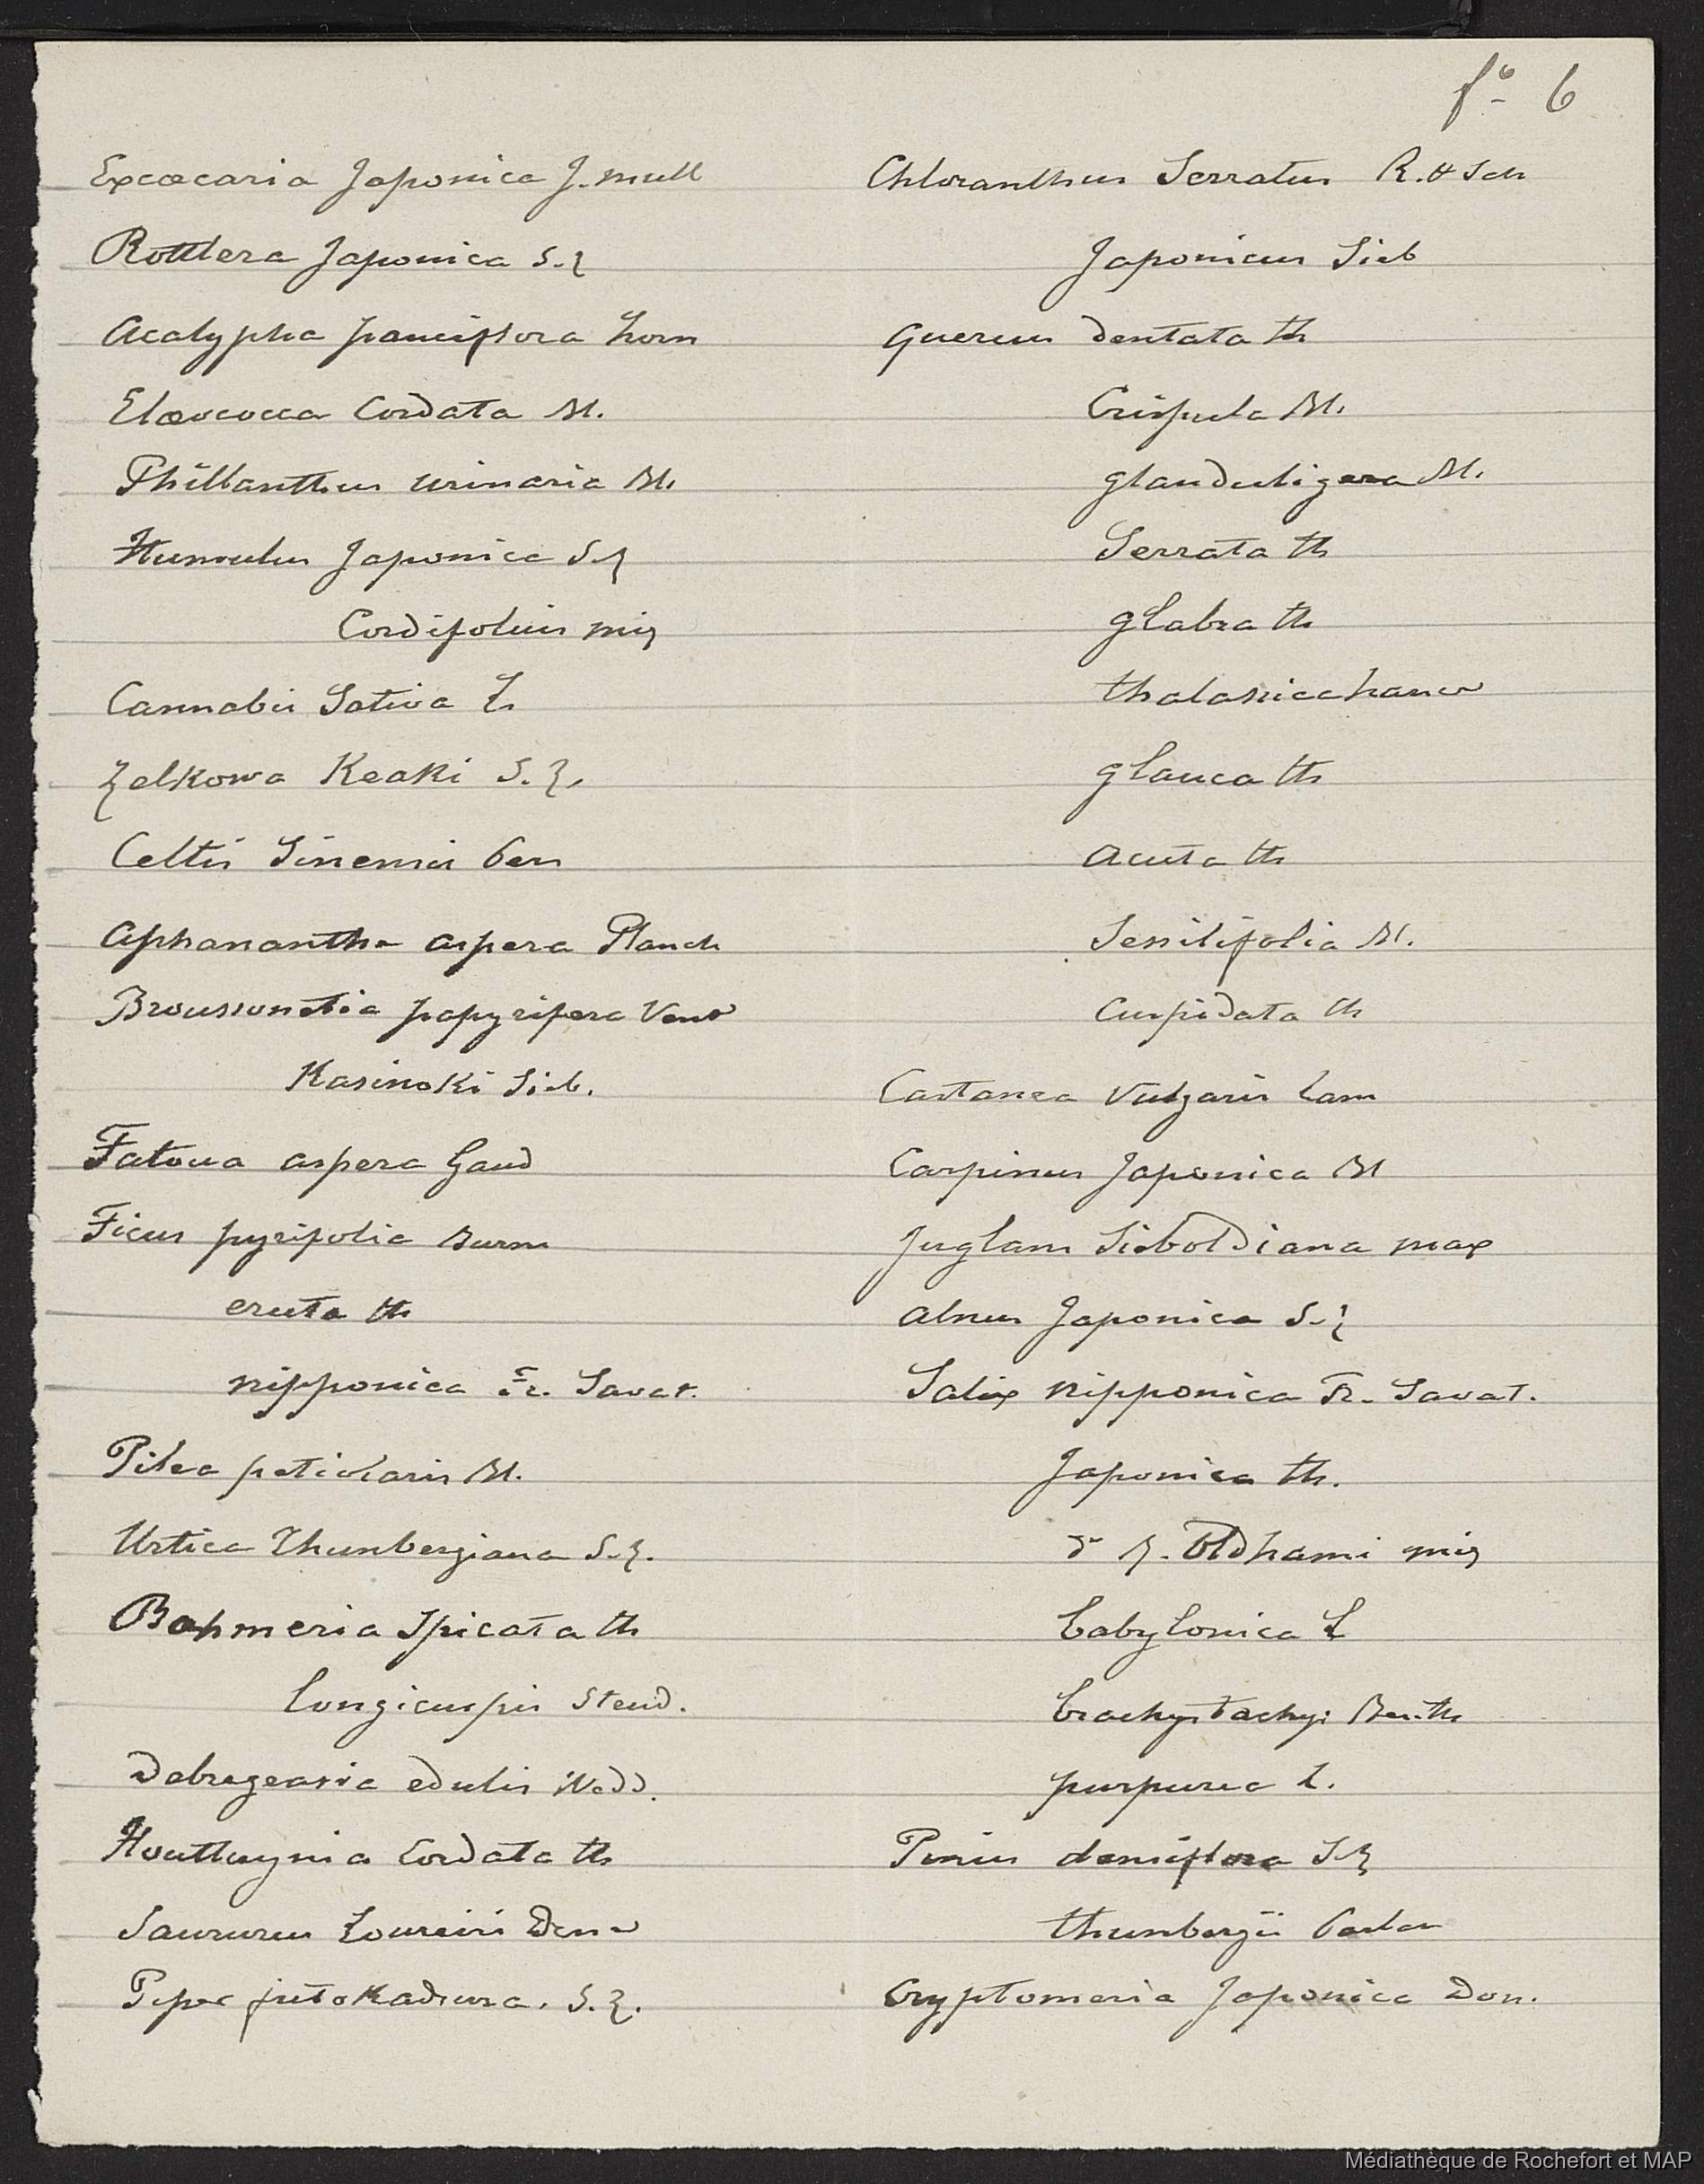 fo 6
Excæcaria Japonica J. mull
Rottlera Japonica S. Z
Acalypha pauciflora horn
Elæococca Cordata Bl.
Phillanthus urinaria Bl.
Humulus Japonica S. Z
Cordifolius miq
Cannabis Sativa L
Zelkowa Keaki S. Z.
Celtis Sinensis Pers
Aphananthe aspera Planch
Broussonetia papyrifera Vent
Kasinoki Sieb.
Fatoua aspera Gaud
Ficus pyrifolia Burm
erecta th
nipponica Fr. Savat.
Pilea petiolaris Bl.
Urtica Thunbergiana S. Z.
Bœhmeria Spicata th
longicuspis Steud.
Debregeasia edulis Wedd.
Houttuynia Cordata th
Saururus Loureiri Dcne
Piper futokadsura. S. Z.
Chloranthus Serratus R. & Sch
Japonicus Sieb
Quercus dentata th
Crispula Bl.
glanduligera Bl.
Serrata th
glabra th
thalassica hance
glauca th
acuta th
Sessilifolia Bl.
Cuspidata th
Castanea Vulgaris Lam
Carpinus Japonica Bl
Juglans Sieboldiana max
Alnus Japonica S. Z
Salix nipponica Fr. Savat.
Japonica th.
Oldhami miq
babylonica L
brachystachys Benth
purpurea L.
Pinus densiflora S. Z
thunbergii Parlat
Cryptomeria Japonica Don.
Médiathèque de Rochefort et MAP